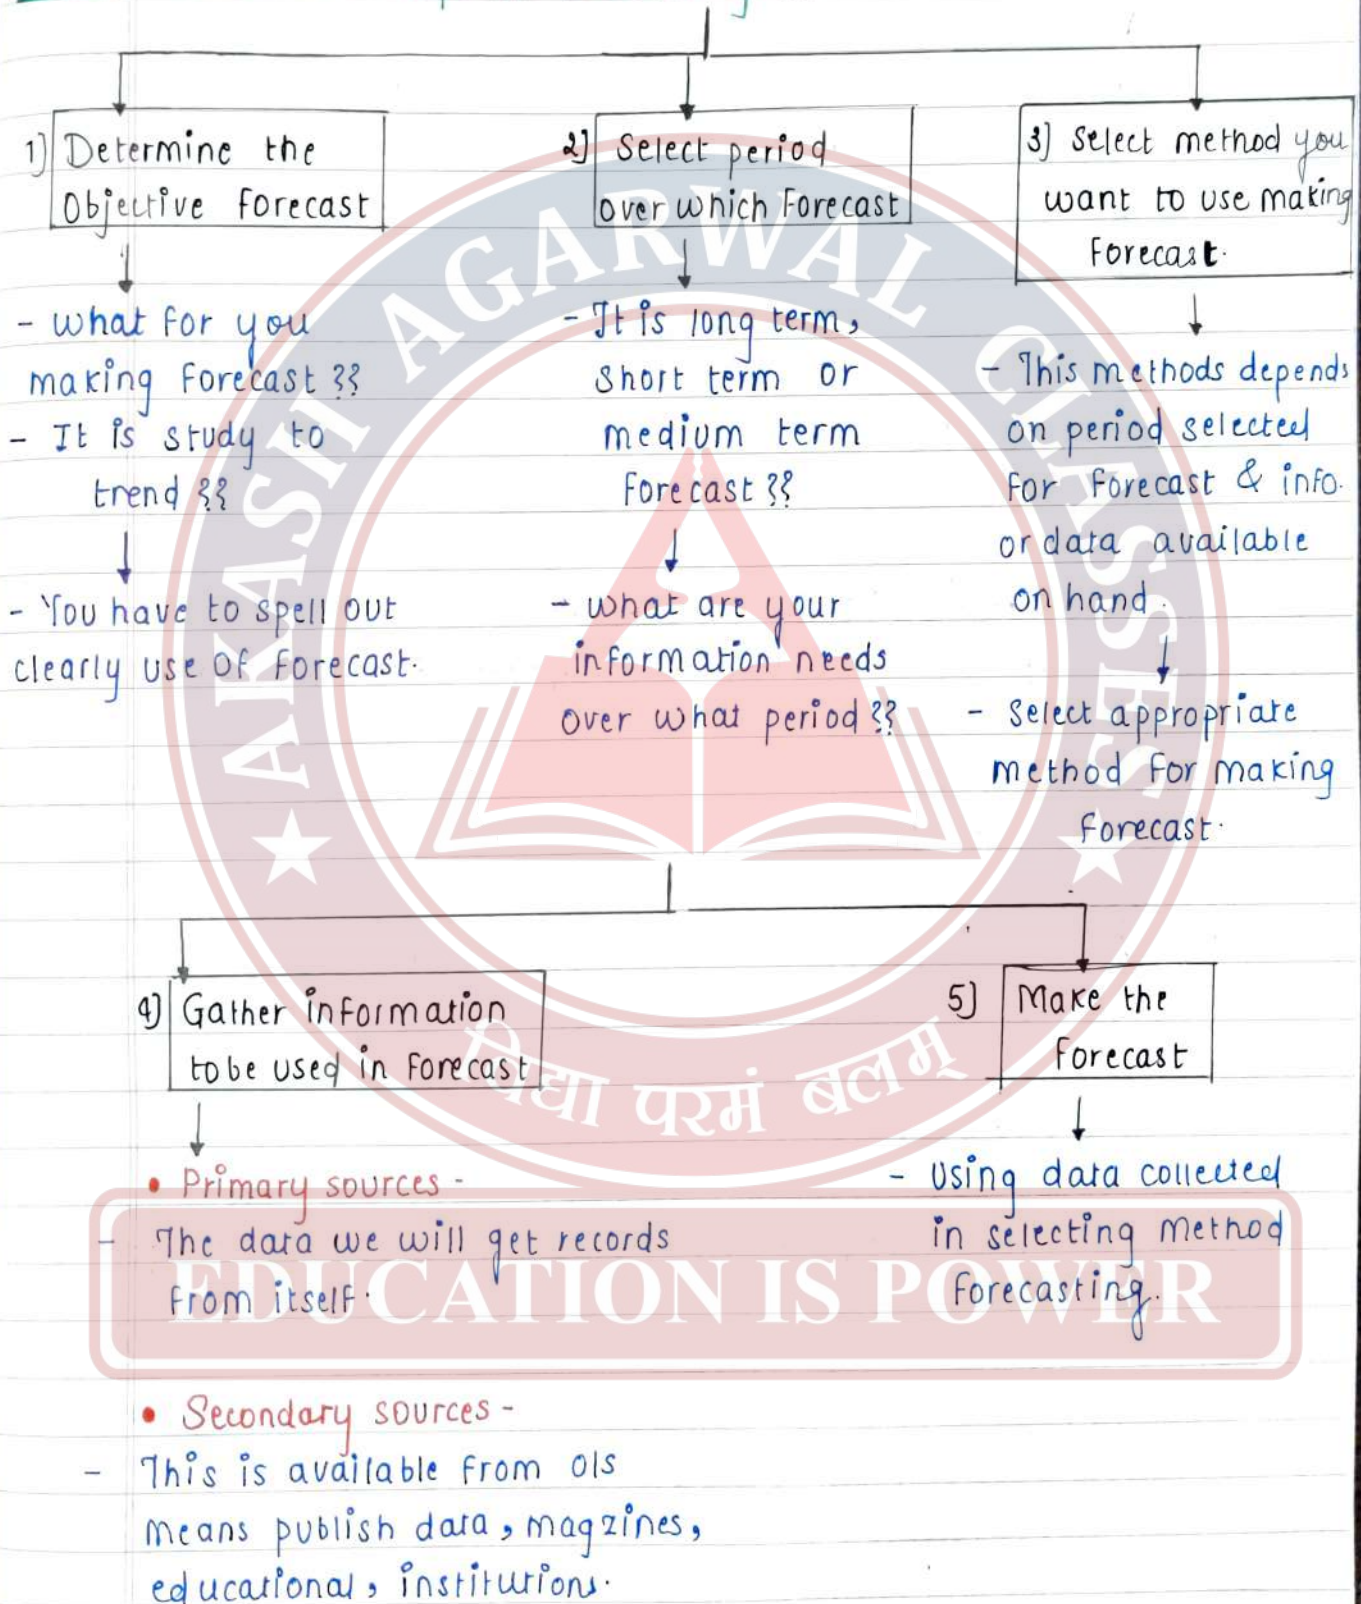 1] Determine the
Objective Forecast
- What for you
making Forecast ??
- It is study to
trend ??
- You have to spell out
clearly use of Forecast.
2] Select period
over which Forecast
- It is long term,
short term or
medium term
Forecast ??
- What are your
information needs
over what period ??
3] Select method you
want to use making
Forecast.
- This methods depends
on period selected
for Forecast & info.
or data available
on hand.
- Select appropriate
method for making
Forecast.
4] Gather information
to be used in Forecast
• Primary sources -
- The data we will get records
from itself.
• Secondary sources -
- This is available from O/S
means publish data, magzines,
educational, institutions.
5] Make the
Forecast
- Using data collected
in selecting method
forecasting.
AKASH AGARWAL CLASSES
विद्या परमं बलम्
EDUCATION IS POWER